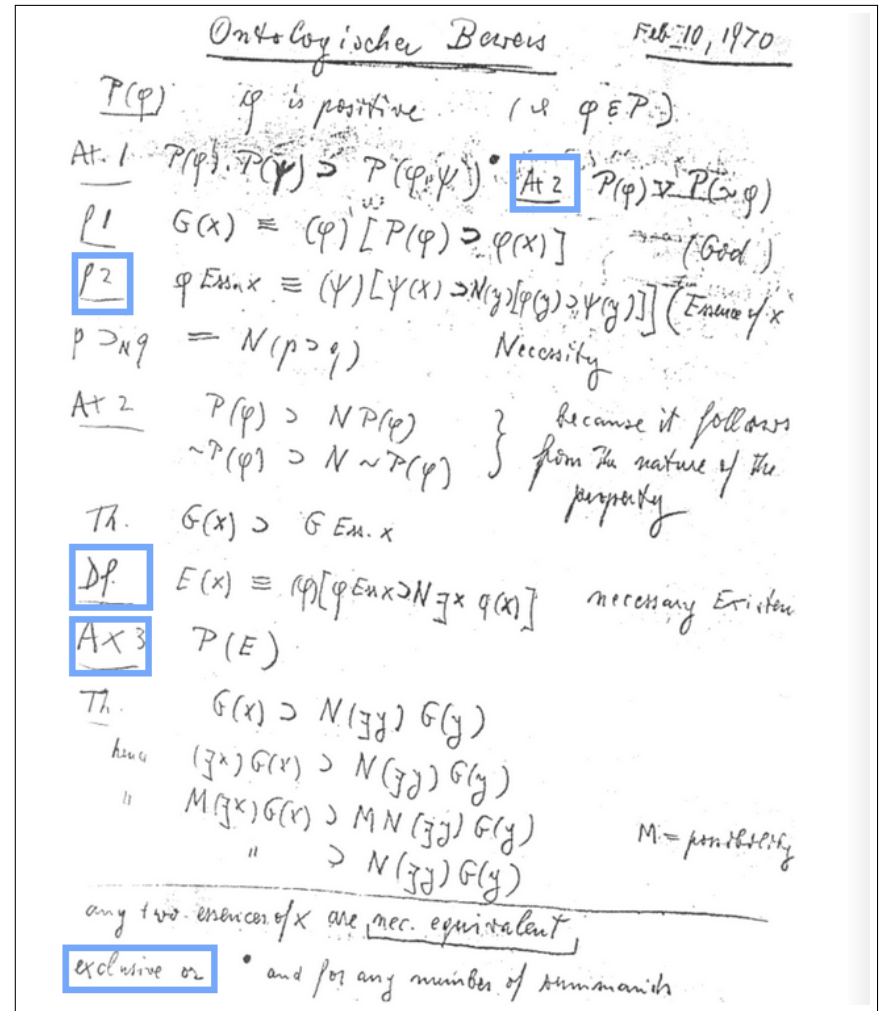 Ontologischer Beweis Feb. 10, 1970
P(φ) φ is positive (φ ε P.)
At. 1 P(φ).P(ψ) ⊃ P(φ.ψ)• At 2 P(φ) ∨ P(~φ)
P1 G(x) ≡ (φ)[P(φ) ⊃ φ(x)] (God)
P2 φ Ess.x ≡ (ψ)[ψ(x) ⊃ N(y)[φ(y) ⊃ ψ(y)]] (Essence of x
p ⊃N q = N(p ⊃ q) Necessity
At 2 P(φ) ⊃ N P(φ) } because it follows
~P(φ) ⊃ N ~P(φ) } from the nature of the
property
Th. G(x) ⊃ G Ess. x
Df. E(x) ≡ (φ)[φ Ess x ⊃ N ∃x φ(x)] necessary Existen
AX 3 P(E)
Th. G(x) ⊃ N(∃y) G(y)
hence (∃x)G(x) ⊃ N(∃y) G(y)
" M(∃x)G(x) ⊃ MN(∃y) G(y) M = possibility
" ⊃ N(∃y) G(y)
any two essences of x are nec. equivalent
exclusive or • and for any number of summands